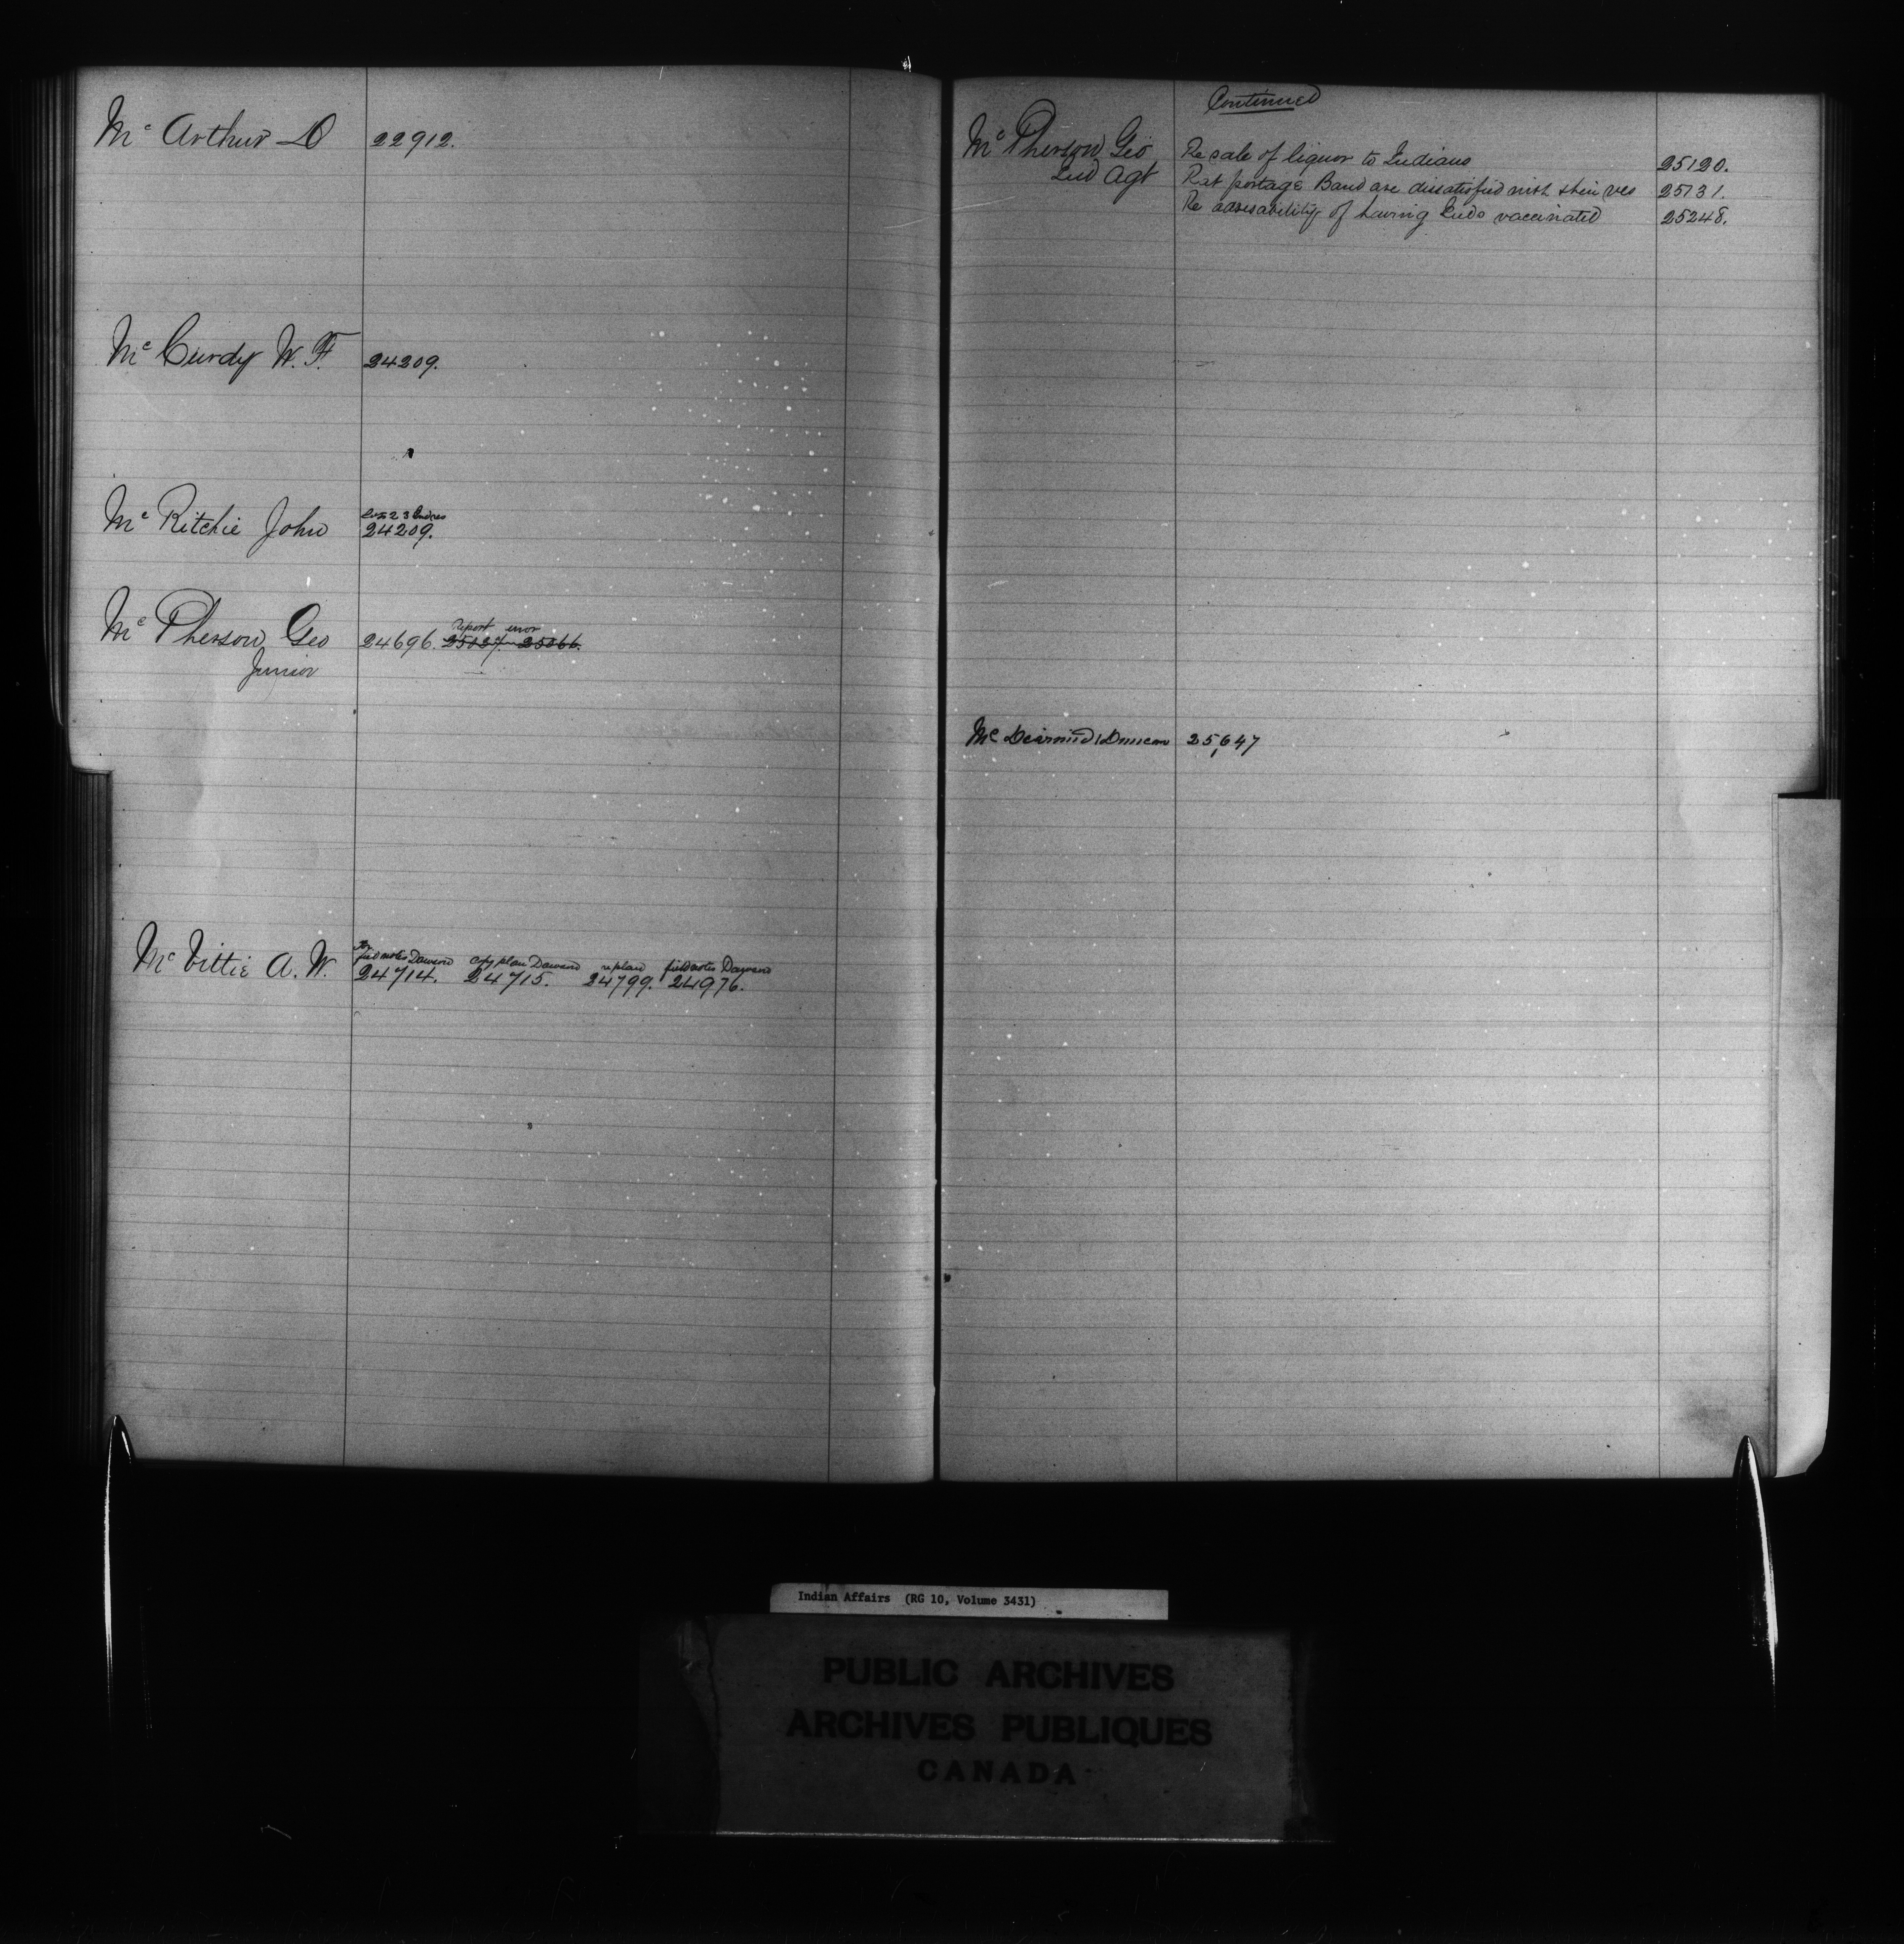 Mc Arthur D 22912.
Mc Curdy W. F. 24209.
Mc Ritchie John 24209.
Report error
Mc Pherson Geo 24696. 25027. 25066.
Junior
For
field notes Dawson copy plan Dawson re plan field notes Dawson
Mc Vittie A. W. 24714. 24715. 24799. 24976.
Continued
Mc Pherson Geo Re sale of liquor to Indians 25120.
Ind Agt Rat portage Band are dissatisfied with their res 25131.
Re advisability of having Inds vaccinated 25248.
Mc Dairmid Duncan 25,647
Indian Affairs (RG 10, Volume 3431)
PUBLIC ARCHIVES
ARCHIVES PUBLIQUES
CANADA